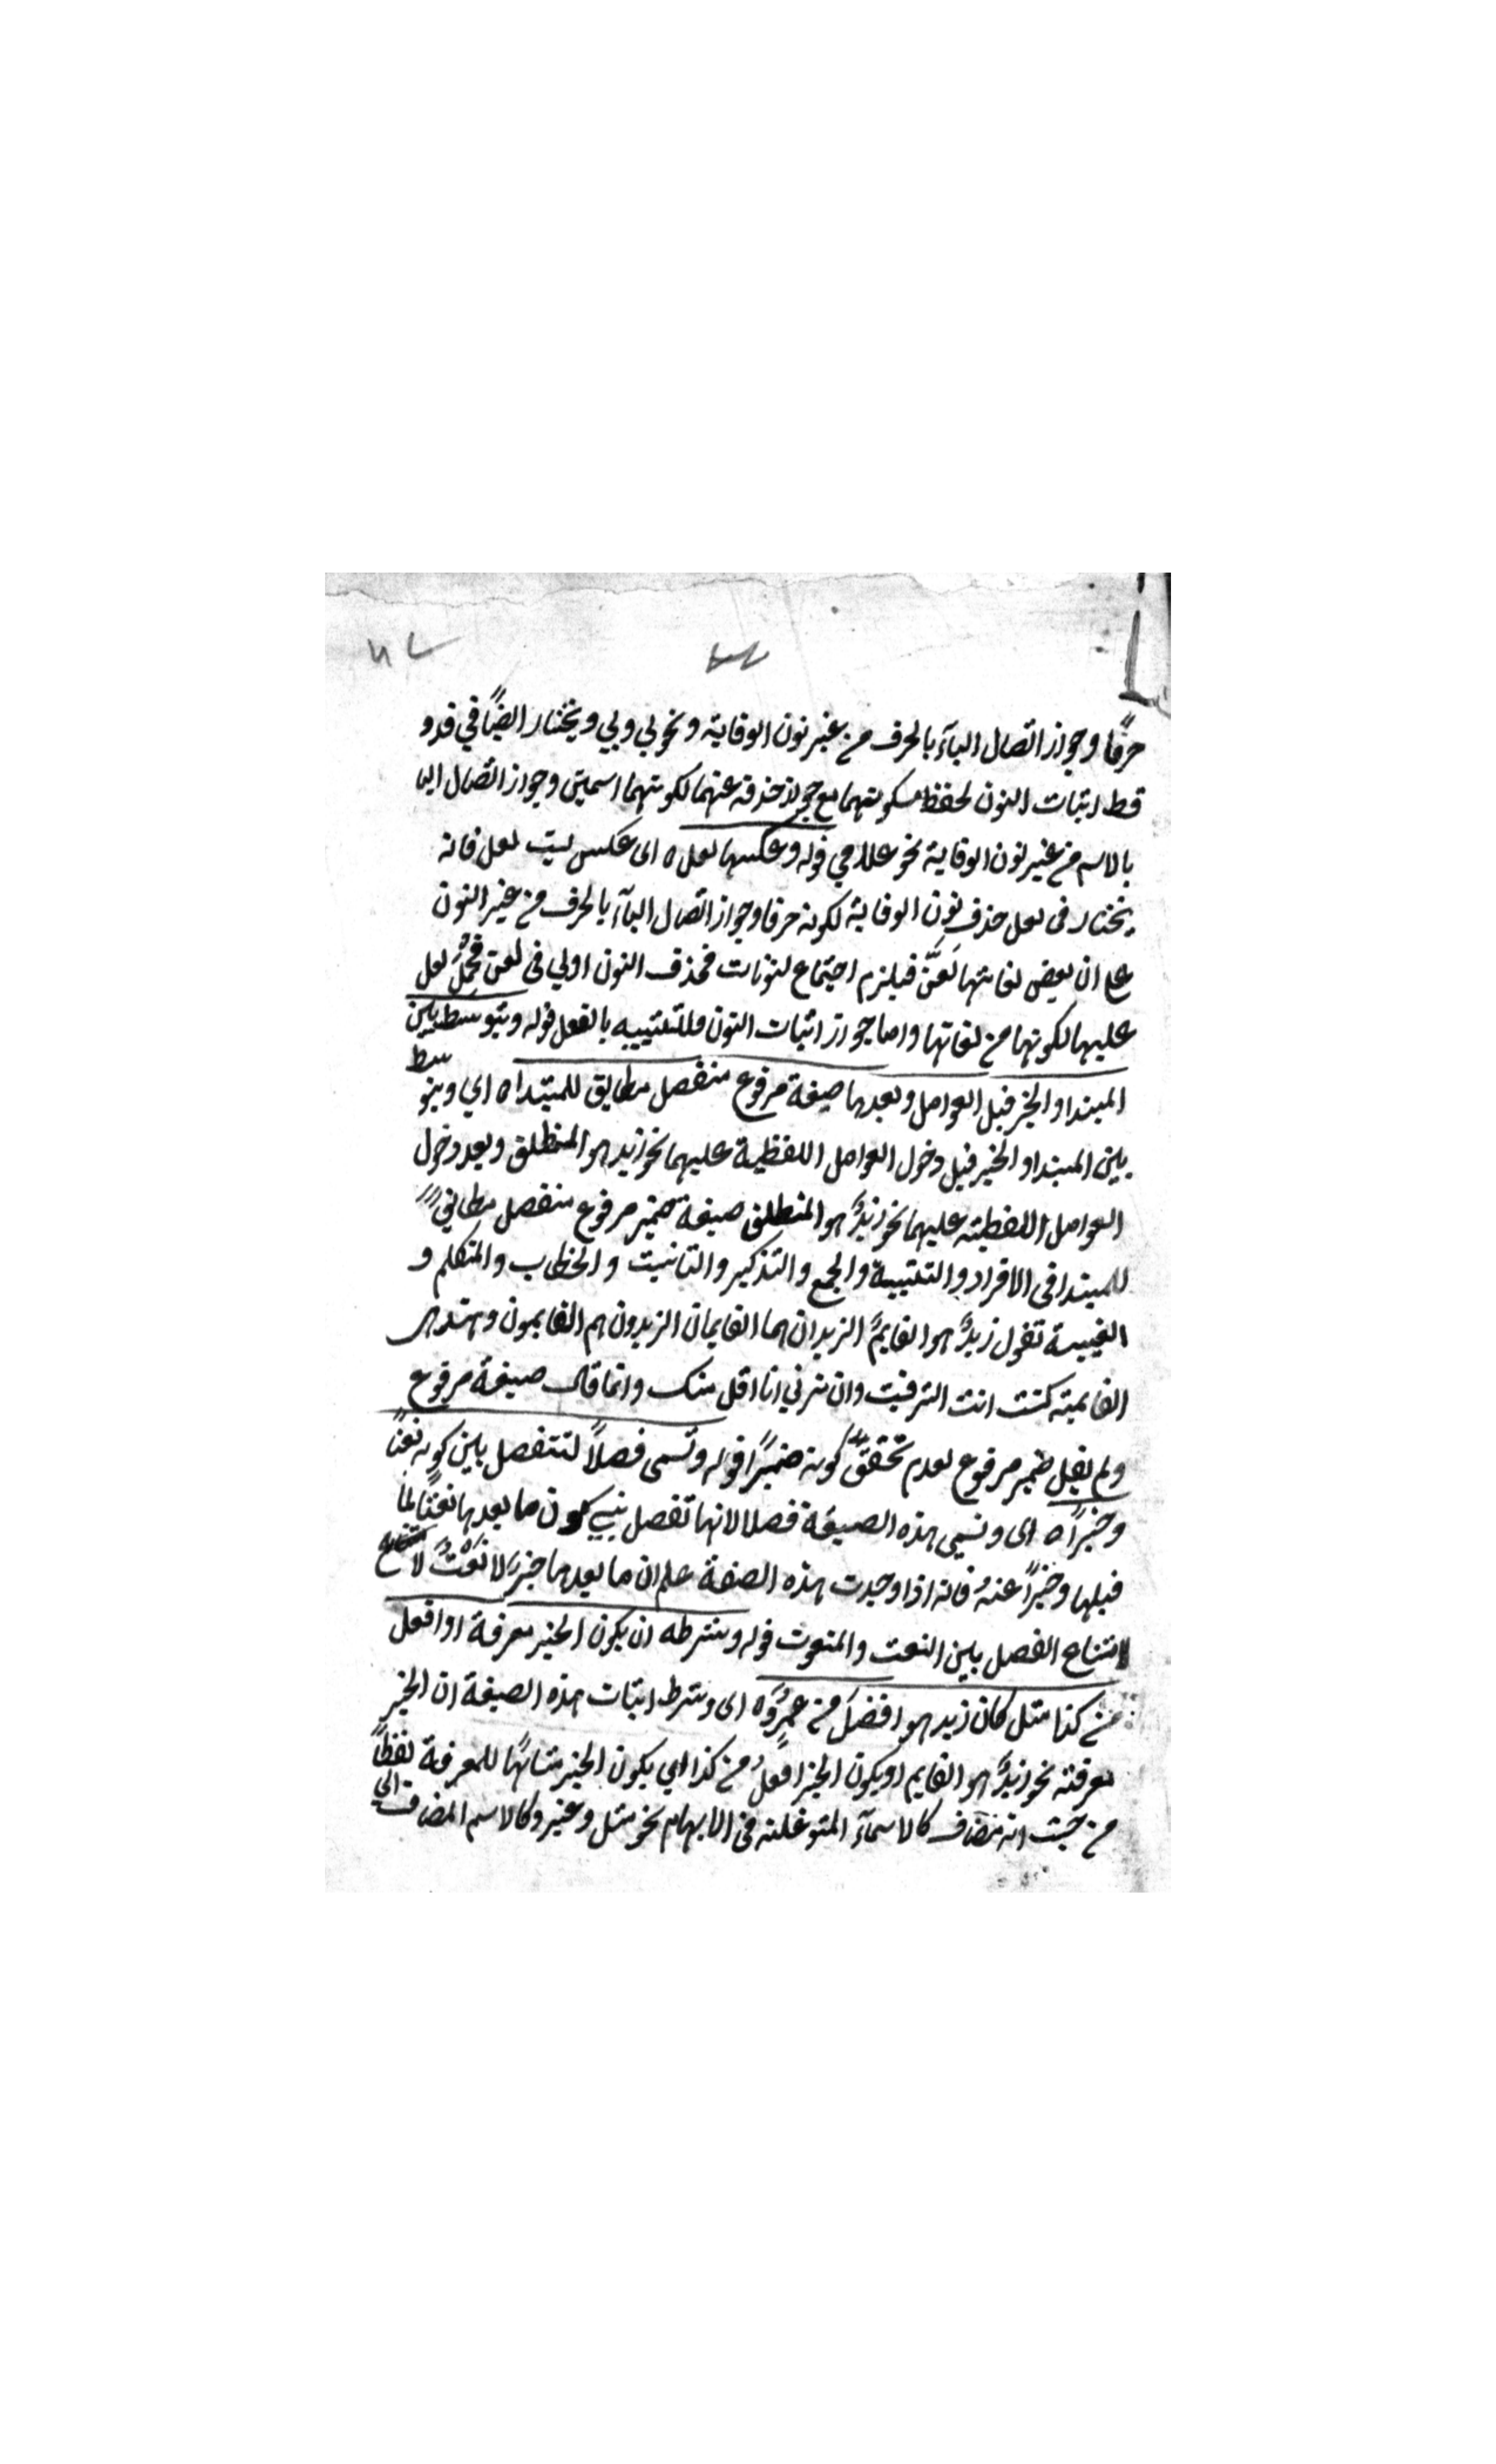 حرفًا وجواز اتصال الیآء بالحرف من غیر نون الوقایة ونحو لي وبي ویختار ایضًا في قد و
قط اثبات النون لحفظ سکونهما مع جواز حذفه عنهما لکونهما اسمین وجواز اتصال الیا
بالاسم من غیر نون الوقایة نحو غلامي قوله وعکسها لعل ه ای عکس لیت لعل فانه
یختار فی لعل حذف نون الوقایة لکونه حرفا وجواز اتصال الیآء بالحرف من غیر النون
علی ان بعض لغاتها لَعَنَّ فیلزم اجتماع لنونات فحذف النون اولي فی لعن فحُمِل لعل
علیها لکونها من لغاتها واما جواز اثبات النون فللتشبیه بالفعل قوله ویتوسط بین
المبتدا والخبر قبل العوامل وبعدها صیغة مرفوع منفصل مطابق للمبتدا ه اي ویتوسط
بین المبتدا والخبر قبل دخول العوامل اللفظیة علیهما نحو زید هو المنطلق وبعد دخول
العوامل اللفظیته علیهما نحو زیدٌ هو المنطلق صیغة ضمیر مرفوع منفصل مطابق
للمبتدا فی الافراد والتثنیة والجمع والتذکیر والتانیث والخطاب والمتکلم و
الغیبة تقول زیدٌ هو القایمُ الزیدان هما القایمان الزیدون هم القایمون وهند هی
القایمته کنت انت الرقیب وان ترني انا اقل منک وانما قال صیغة مرفوع
ولم یقل ضمیر مرفوع لعدم تحقق کونه ضمیرًا قوله وتسمی فصلًا لتفصل بین کونه نعتًا
وخبرًا ه ای وتسمی هذه الصیغة فصلا لانها تفصل بین کون ما بعدها نعتًا لما
قبلها وخبرًا عنهُ فانه اذا وجدت هذه الصفة علم ان ما بعدها خبرٌ لا نَعْتٌ
لامتناع الفصل بین النعت والمنعوت قوله وشرطه ان یکون الخبر معرفة او افعل
من کذا مثل کان زید هو افضل من عمرو ه ای وشرط اثبات هذه الصیغة ان الخبر
معرفته نحو زیدٌ هو القایم او یکون الخبر افعلُ من کذا اي یکون الخبر مشابهًا للمعرفة لفظًا
من حیث انه مضاف کالاسمآء المتوغلته فی الابهام نحو مثل وغیر وکالاسم المضاف الي